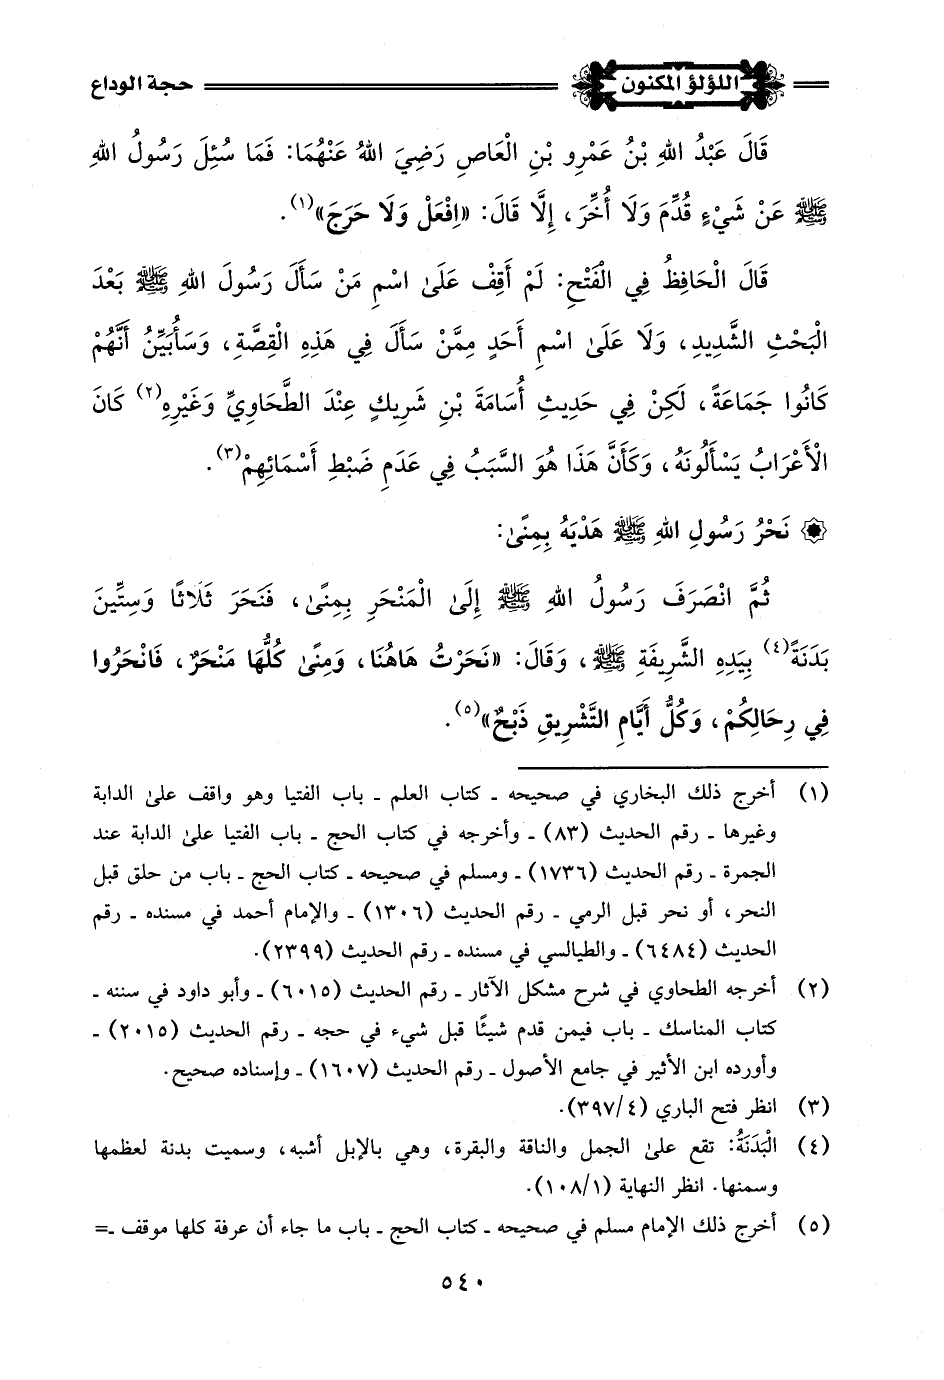 اللؤلؤ المكنون
حجة الوداع
قَالَ عَبْدُ اللهِ بْنُ عَمْرِو بْنِ الْعَاصِ رَضِيَ اللهُ عَنْهُمَا: فَمَا سُئِلَ رَسُولُ اللهِ
ﷺ عَنْ شَيْءٍ قُدِّمَ وَلَا أُخِّرَ، إِلَّا قَالَ: «اِفْعَلْ وَلَا حَرَجَ»(١).
قَالَ الْحَافِظُ فِي الْفَتْحِ: لَمْ أَقِفْ عَلَىٰ اسْمِ مَنْ سَأَلَ رَسُولَ اللهِ ﷺ بَعْدَ
الْبَحْثِ الشَّدِيدِ، وَلَا عَلَىٰ اسْمِ أَحَدٍ مِمَّنْ سَأَلَ فِي هَذِهِ الْقِصَّةِ، وَسَأُبَيِّنُ أَنَّهُمْ
كَانُوا جَمَاعَةً، لَكِنْ فِي حَدِيثِ أُسَامَةَ بْنِ شَرِيكٍ عِنْدَ الطَّحَاوِيِّ وَغَيْرِهِ(٢) كَانَ
الْأَعْرَابُ يَسْأَلُونَهُ، وَكَأَنَّ هَذَا هُوَ السَّبَبُ فِي عَدَمِ ضَبْطِ أَسْمَائِهِمْ(٣).
۞ نَحْرُ رَسُولِ اللهِ ﷺ هَدْيَهُ بِمِنًىٰ:
ثُمَّ انْصَرَفَ رَسُولُ اللهِ ﷺ إِلَىٰ الْمَنْحَرِ بِمِنًىٰ، فَنَحَرَ ثَلَاثًا وَسِتِّينَ
بَدَنَةً(٤) بِيَدِهِ الشَّرِيفَةِ ﷺ، وَقَالَ: «نَحَرْتُ هَاهُنَا، وَمِنًىٰ كُلُّهَا مَنْحَرٌ، فَانْحَرُوا
فِي رِحَالِكُمْ، وَكُلُّ أَيَّامِ التَّشْرِيقِ ذَبْحٌ»(٥).
(١) أخرج ذلك البخاري في صحيحه ـ كتاب العلم ـ باب الفتيا وهو واقف علىٰ الدابة
وغيرها ـ رقم الحديث (٨٣) ـ وأخرجه في كتاب الحج ـ باب الفتيا علىٰ الدابة عند
الجمرة ـ رقم الحديث (١٧٣٦) ـ ومسلم في صحيحه ـ كتاب الحج ـ باب من حلق قبل
النحر، أو نحر قبل الرمي ـ رقم الحديث (١٣٠٦) ـ والإمام أحمد في مسنده ـ رقم
الحديث (٦٤٨٤) ـ والطيالسي في مسنده ـ رقم الحديث (٢٣٩٩).
(٢) أخرجه الطحاوي في شرح مشكل الآثار ـ رقم الحديث (٦٠١٥) ـ وأبو داود في سننه ـ
كتاب المناسك ـ باب فيمن قدم شيئًا قبل شيء في حجه ـ رقم الحديث (٢٠١٥) ـ
وأورده ابن الأثير في جامع الأصول ـ رقم الحديث (١٦٠٧) ـ وإسناده صحيح.
(٣) انظر فتح الباري (٣٩٧/٤).
(٤) الْبَدَنَةُ: تقع علىٰ الجمل والناقة والبقرة، وهي بالإبل أشبه، وسميت بدنة لعظمها
وسمنها. انظر النهاية (١٠٨/١).
(٥) أخرج ذلك الإمام مسلم في صحيحه ـ كتاب الحج ـ باب ما جاء أن عرفة كلها موقف ـ=
٥٤٠